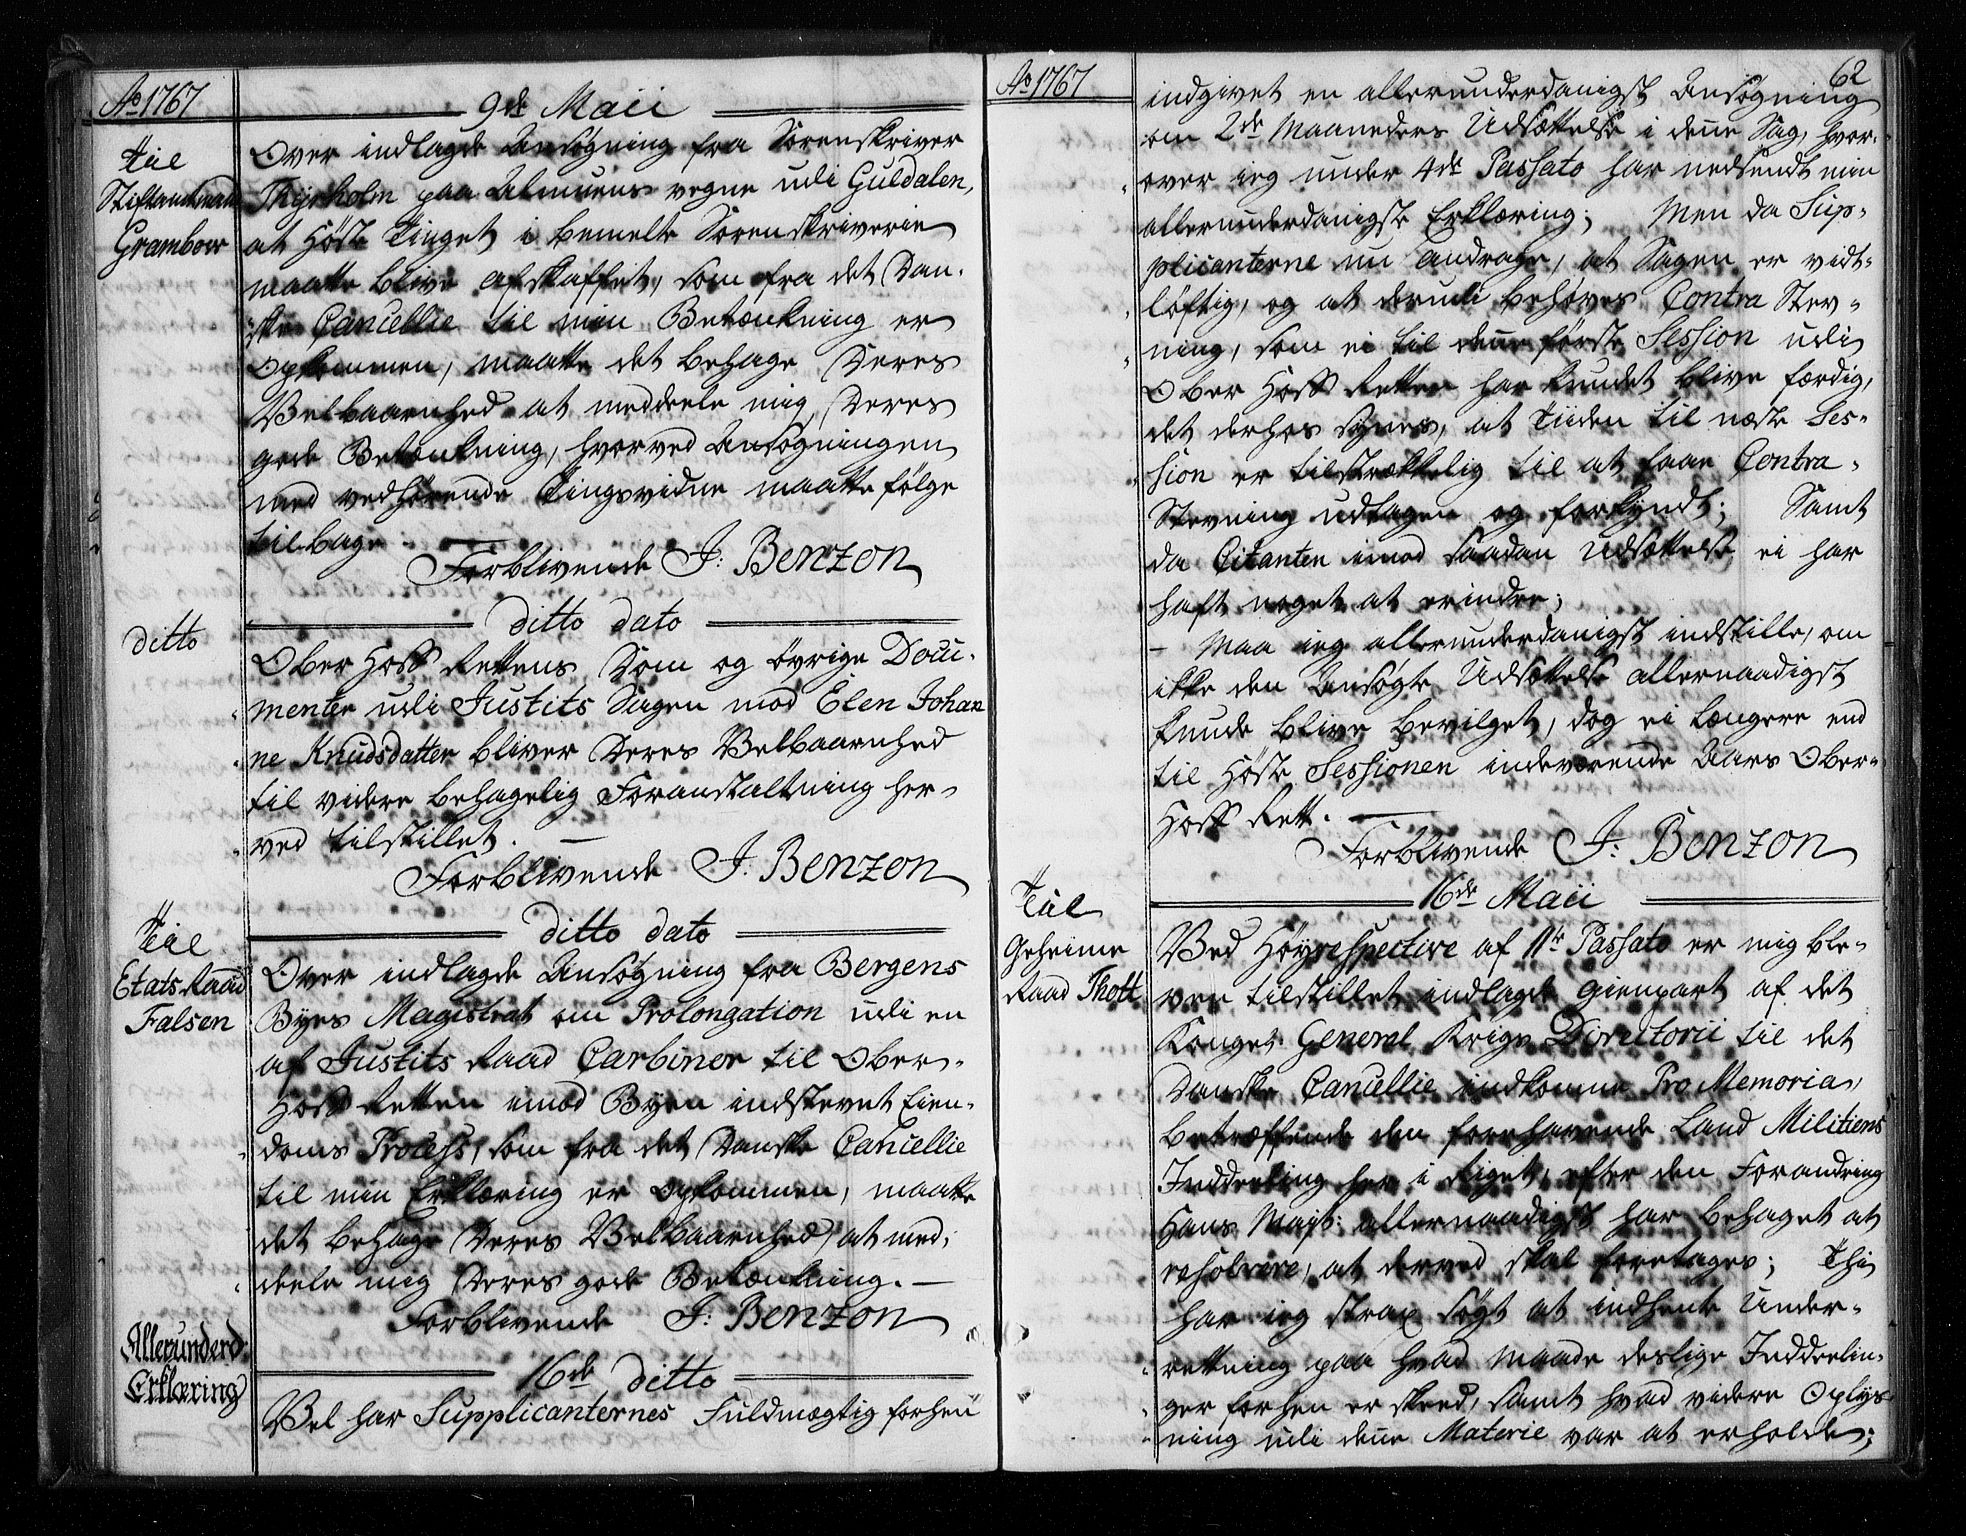 Ao 1767
9de Maii
Til
Stiftamtmand
Grambow
Over indlagde Ansøgning fra Sorenskriver
Thyrholm paa Almuens vegne udi Guldalen,
at Høste Tinget i bemelte Sorenskriverie
maatte blive afskaffet, som fra det Dan-
ske Cancellie til min Betænkning er
Opkommen, maatte det behage Deres
Velbaarenhed at meddeele mig Deres
gode Betænkning, hvorved Ansøgningen
med vedhørende Tingsvidne maatte følge
tilbage.
Forblivende J: Benzon
ditto
ditto dato
Ober Hoff Rettens Dom og øvrige Docu-
menter udi Justits Sagen mod Elen Johan
ne Knudsdatter bliver Deres Velbaarenhed
til videre behagelig Foranstaltning her-
ved tilstillet.
Forblivende J. Benzon
Til
Etats Raad
Falsen
ditto dato
Over indlagde Ansøgning fra Bergens
Byes Magistrat om Prolongation udi en
af Justits Raad Carbiner til Ober-
Hoff Retten imod Byen indstevnet Eien-
doms Process, som fra det Danske Cancellie
til min Erklæring er opkommen, maatte
det behage Deres Velbaarenhed, at med-
deele mig Deres gode Betænkning.
Forblivende J: Benzon
Allerunderd:
Erklæring
16de ditto
Vel har Supplicanternes Fuldmægtig forhen
Ao 1767
62
indgivet en allerunderdanigst Ansøgning
om 2de Maaneders Udsættelse i denne Sag, hvor-
over ieg under 4de Passato har nedsendt min
allerunderdanigste Erklæring; Men da Sup-
plicanterne nu andrage, at Sagen er vidt-
løftig, og at derudi behøves Contra Stev-
ning, som ei til denne første Session udi
Ober Hoff Retten har kundet blive færdig,
det derhos synes, at Tiiden til næste Ses-
sion er tilstrækkelig til at faae Contra-
Stevning udtagen og forkyndt; Samt
da Citanten imod saadan Udsættelse ei har
haft noget at erindre;
- Maa ieg allerunderdanigst indstille, om
ikke den Ansøgte Udsættelse allernaadigst
kunde blive bevilget, dog ei længere end
til Høste Sessionen indeværende Aars Ober-
Hoff Rett.
Forblivende J: Benzon
Til
Geheime
Raad Thott
16de Maii
Ved Høyrespective af 11te Passato er mig ble-
ven tilstillet indlagde gienpart af det
Konge: General Krigs Directorii til det
Danske Cancellie indkomne Pro Memoria,
betræffende den forehavende Land Militiens
Inddeeling her i Riget, efter den Forandring
Hans Majt: allernaadigst har behaget at
resolvere, at derved skal foretages; Thi
har ieg strax søgt at indhente Under-
rettning paa hvad Maade deslige Inddeelin-
ger forhen er skeed, samt hvad videre Oplys
ning udi denne Materie var at erholde;